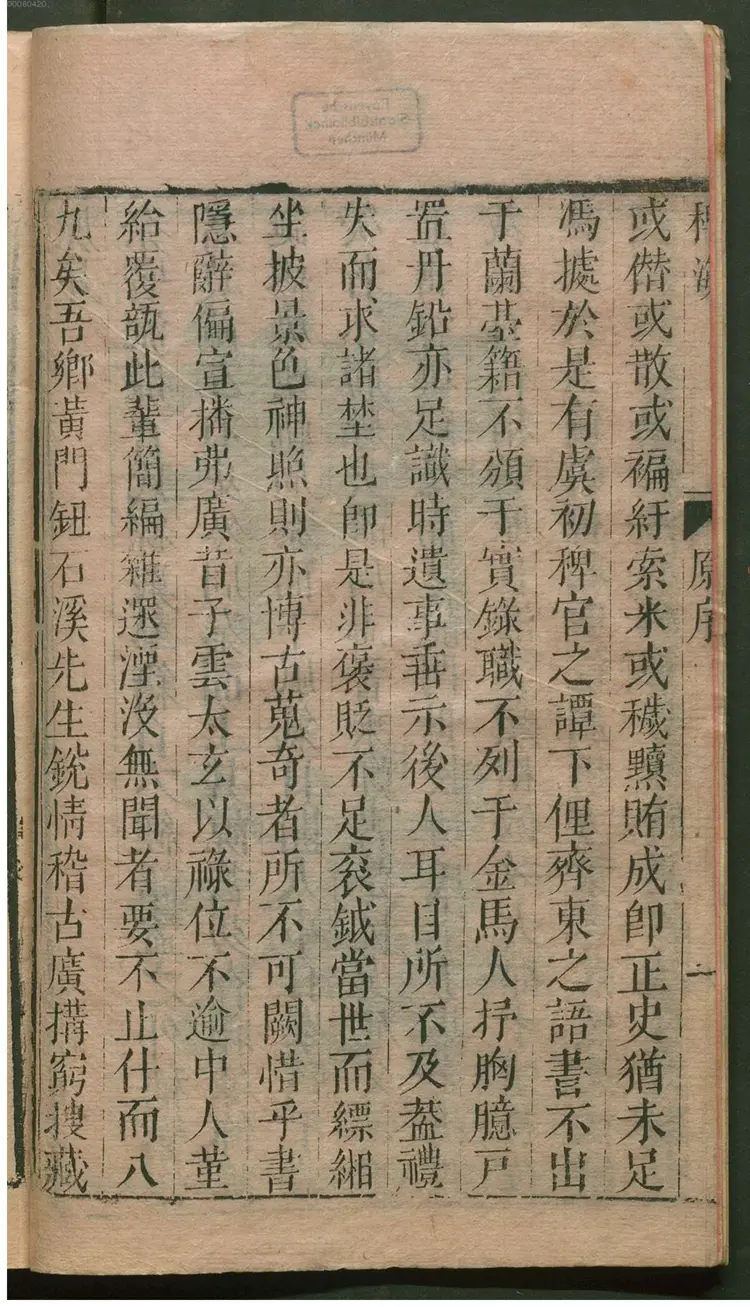 00080420
稗海
原序
二
或僣或散或褊紆索米或穢黷賄成卽正史猶未足
馮據於是有虞初稗官之譚下俚齊東之語書不出
于蘭臺籍不頒于實錄職不列于金馬人抒胸臆戸
置丹鉛亦足識時遺事垂示後人耳目所不及葢禮
失而求諸埜也卽是非褒貶不足衮鉞當世而縹緗
坐披景色神照則亦博古蒐奇者所不可闕惜乎書
隱辭偏宣播弗廣昔子雲太玄以祿位不逾中人菫
給覆瓿此輩簡編雜遝湮沒無聞者要不止什而八
九矣吾鄉黃門鈕石溪先生銳情稽古廣搆窮搜藏